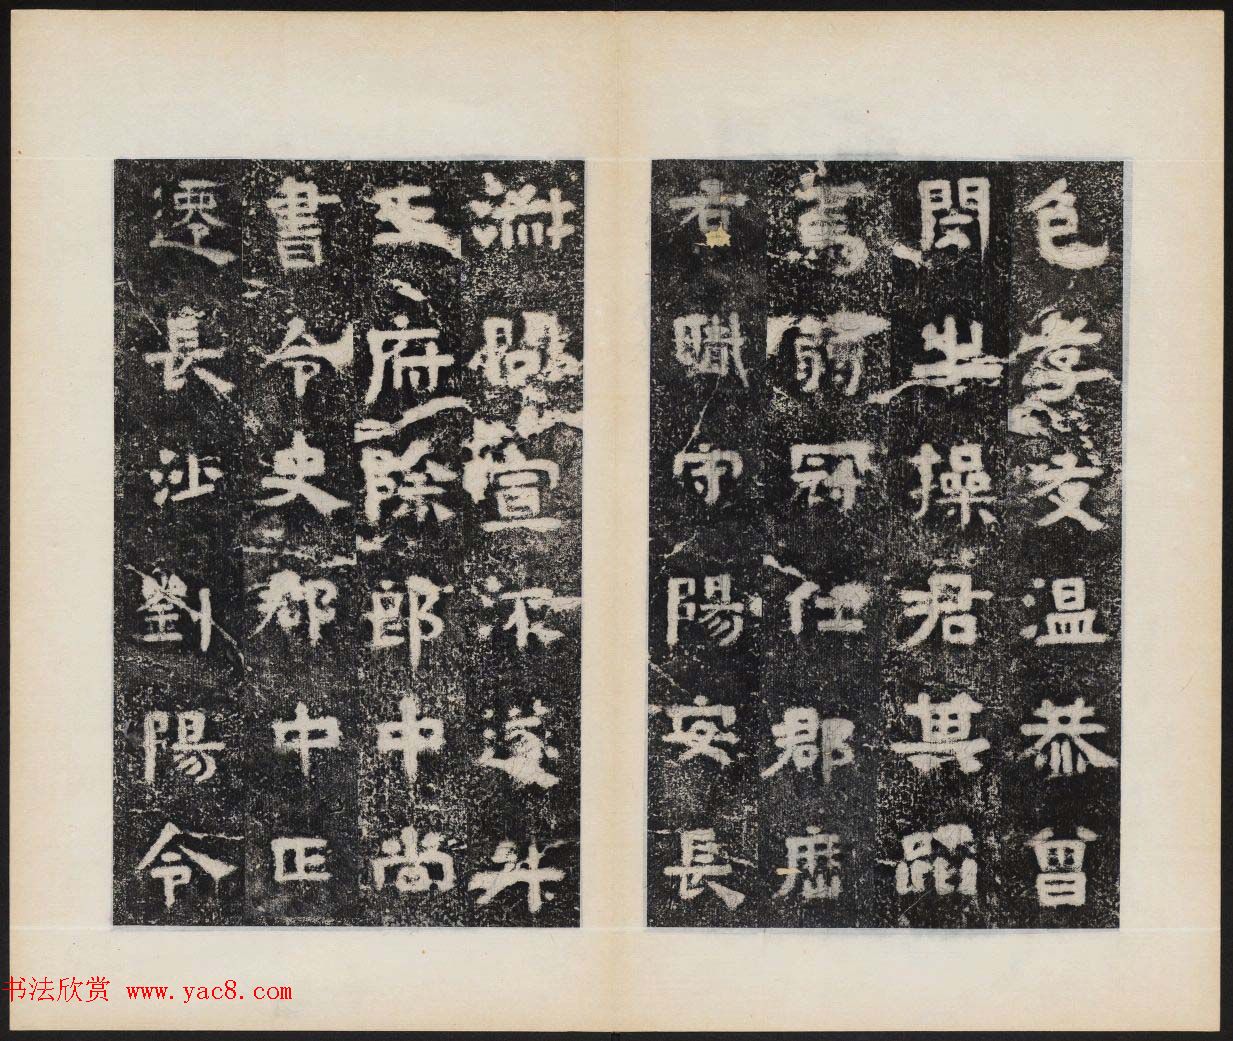 色孝友温恭曾
閔之操君其蹈
焉弱冠仕郡歷
右職守陽安長
宣遂升
王府除郎中尚
書令史郡中正
遷長沙劉陽令
书法欣赏 www.yac8.com